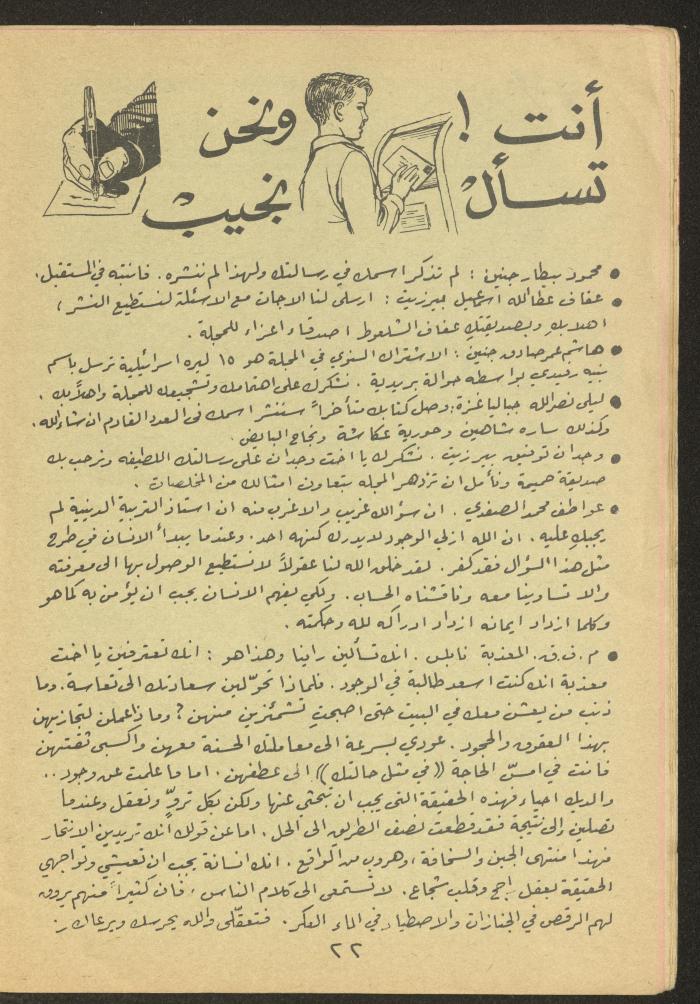 أنت !
تسأل
ونحن
نجيب
● محمود بيطار جنين : لم تذكر اسمك في رسالتك ولهذا لم ننشره . فانتبه في المستقبل .
● عفاف عطا الله اسماعيل بيرزيت : ارسلي لنا الاجابات مع الاسئلة لنستطيع النشر ،
اهلا بك وبصديقتك عفاف الشلعوط اصدقاء اعزاء للمجلة .
● هاشم عمر صادق جنين : الاشتراك السنوي في المجلة هو ١٥ ليره اسرائيلية ترسل باسم
بواسطه حوالة بريدية . نشكرك على اهتمامك وتشجيعك للمجلة واهلاً بك .
● ليلى نصر الله جباليا غزة : وصل كتابك متأخراً سننشر اسمك في العدد القادم ان شاء الله .
وكذلك ساره شاهين وحورية عكاشة ونجاح البايض .
● وجدان توفيق بيرزيت . نشكرك يا اخت وجدان على رسالتك اللطيفه ونرحب بك
صديقة حميمة ونأمل ان تزدهر المجله بتعاون امثالك من المخلصات .
● عواطف محمد الصفدي . ان سؤالك غريب والاغرب منه ان استاذ التربية الدينية لم
يجبك عليه . ان الله ازلي الوجود لا يدرك كنهه احد . وعندما يبدأ الانسان في طرح
مثل هذا السؤال فقد كفر . لقد خلق الله لنا عقولاً لا نستطيع الوصول بها الى معرفته
والا تساوينا معه وناقشناه الحساب . ولكي يفهم الانسان يجب ان يؤمن به كما هو
وكلما ازداد ايمانه ازداد ادراكه لله وحكمته .
● م . ف . ق . المعذبة نابلس . انك تسألين راينا وهذا هو : انك تعترفين يا اخت
معذبة انك كنت اسعد طالبة في الوجود . فلماذا تحوّلين سعادتك الى تعاسة . وما
ذنب من يعشن معك في البيت حتى اصبحت تشمئزين منهن ؟ وماذا عملن لتجازيهن
بهذا العقوق والجحود . عودي بسرعة الى معاملتك الحسنة معهن واكسبي ثقتهن
فانت في امسّ الحاجة (( في مثل حالتك )) الى عطفهن . اما ما علمت عن وجود ..
والديك احياء فهذه الحقيقة التي يجب ان تبحثي عنها ولكن بكل تروٍّ وتعقل وعندما
تصلين الى نتيجة فقد قطعت نصف الطريق الى الحل . اما عن قولك انك تريدين الانتحار
فهذا منتهى الجبن والسخافة ، وهروب من الواقع . انك انسانة يجب ان تعيشي وتواجهي
الحقيقة بعقل راجح وقلب شجاع . لا تستمعي الى كلام الناس ، فان كثيراً منهم يروق
لهم الرقص في الجنازات والاصطياد في الماء العكر . فتعقّلي والله يحرسك ويرعاك .
٢٢